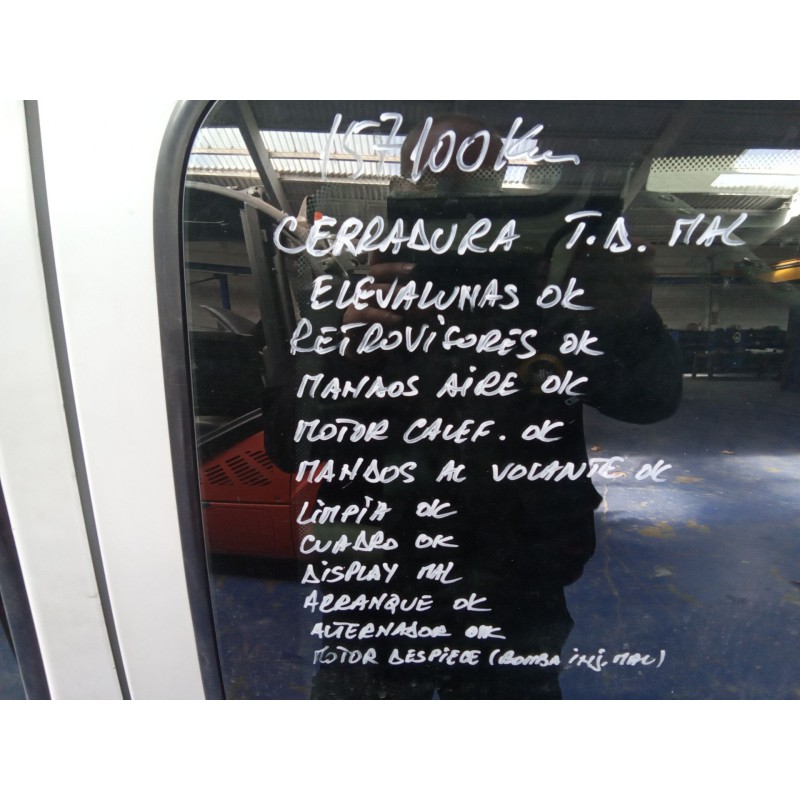 157100 Km
CERRADURA T.D. MAL
ELEVALUNAS OK
RETROVISORES OK
MANDOS AIRE OK
MOTOR CALEF. OK
MANDOS AL VOLANTE OK
LIMPIA OK
CUADRO OK
DISPLAY MAL
ARRANQUE OK
ALTERNADOR OK
MOTOR DESPIECE (BOMBA inj. MAL)